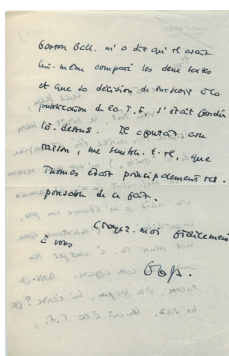 Gaston Gall. m'a dit qu'il avait
lui-même comparé les deux textes
et que sa décision de surseoir à la
publication de la T.F. s'était fondée
là-dessus. Il ajoutait avec
raison, me semble-t-il, que
Thomas était principalement res-
ponsable de ce fait.
Croyez-moi
à vous